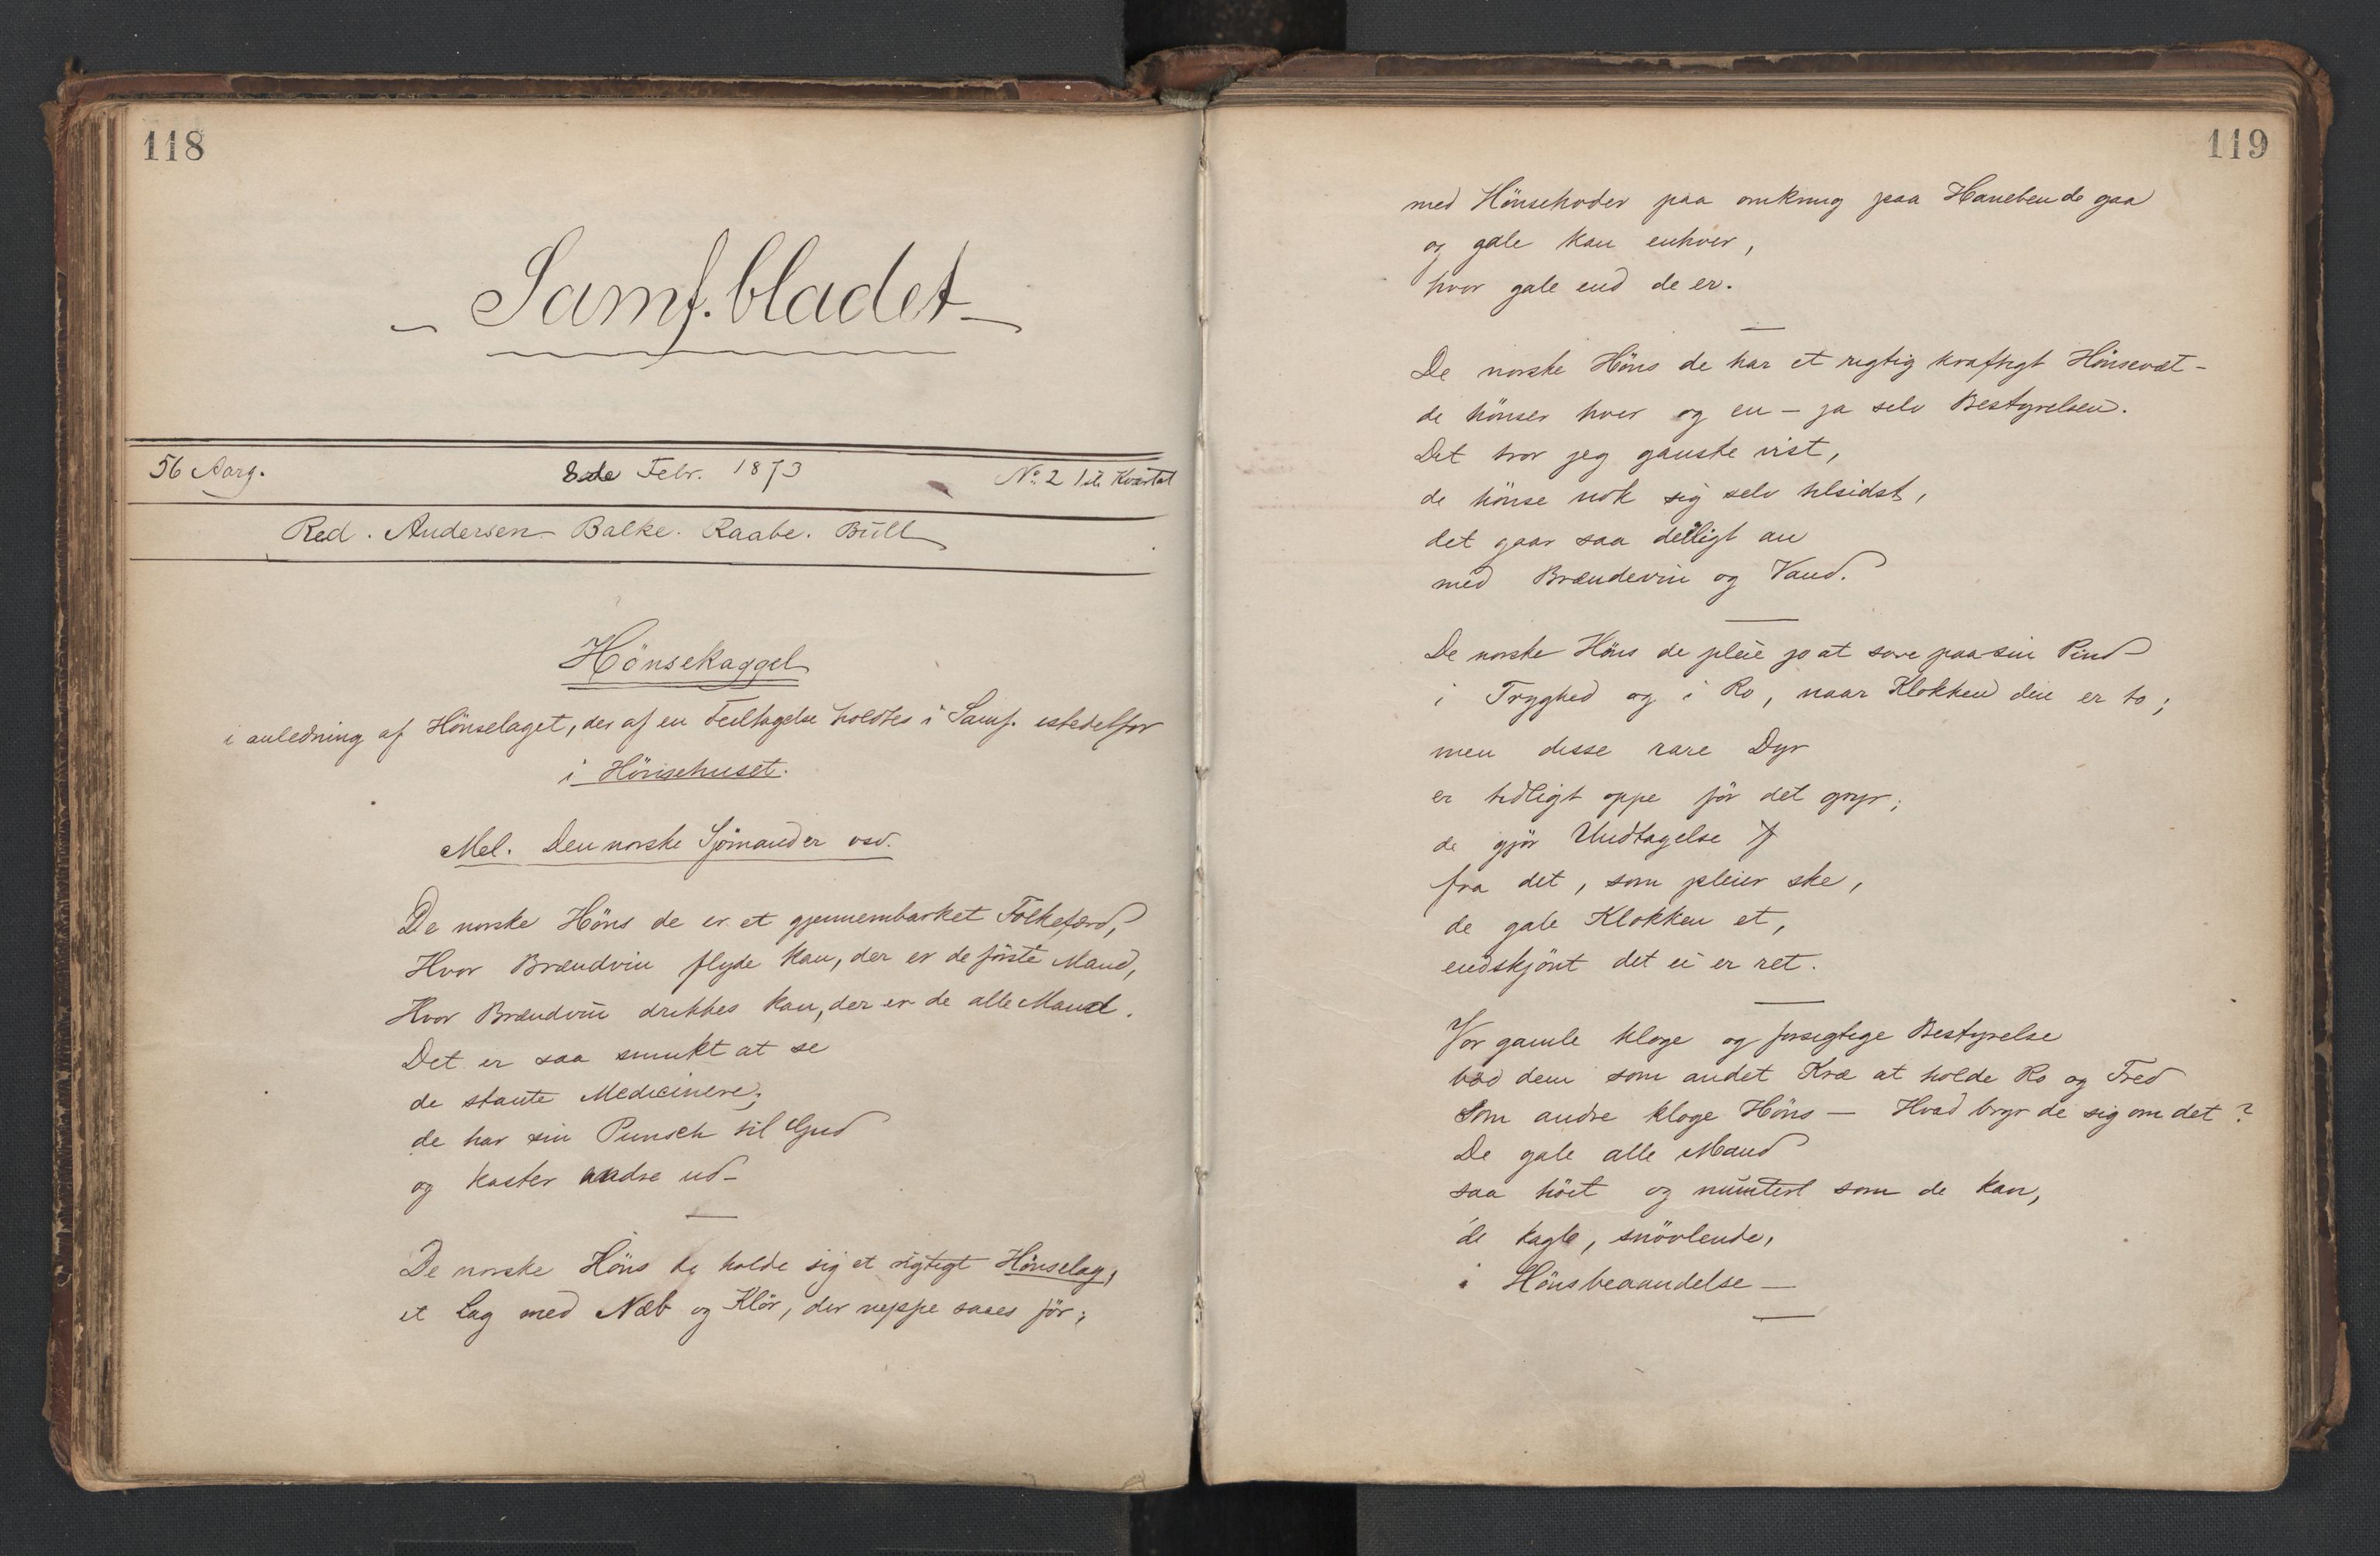 118
- Samf. bladet -
56 Aarg. 8de Febr. 1873 No. 2 1ste Kvartal
Red. Andersen Balke. Raabe. Bull
Hönsekaggel
i anledning af Hönselaget, der af en Feiltagelse holdtes i Samf. istedetfor
i Hönsehuset.
Mel. Den norske Sjömand er osv.
De norske Höns de er et gjennembarket Folkefærd,
Hvor Brændvin flyde kan, der er de förste Mand,
Hvor Brændvin drikkes kan, der er de alle Mand.
Det er saa smukt at se
de staute Medicinere;
de har sin Punsch til Gud
og kaster andre ud -
De norske Höns de holde sig et rigtigt Hönselag,
et Lag med Næb og Klör, der neppe saaes för;
119
med Hönsehoder paa omkring paa Haneben de gaa
og gale kan enhver,
hvor gale end de er.
De norske Höns de har et rigtig kraftigt Hönsevæt -
de hönser hver og en - ja selv Bestyrelsen.
Det tror jeg ganske vist,
de hönse nok sig selv tilsidst,
det gaar saa deiligt an
med Brændevin og Vand.
De norske Höns de pleie jo at sove paa sin Pind
i Tryghed og i Ro, naar Klokken den er to;
men disse rare Dyr
er tidligt oppe för det gryr;
de gjör Undtagelse
fra det, som pleier ske,
de gale Klokken et,
endskjönt det ei er ret.
Vor gamle kloge og forsigtige Bestyrelse
bød dem som andet Kræ at holde Ro og Fred
Som andre kloge Höns - Hvad bryr de sig om det?
De gale alle Mand
saa höit og muntert som de kan,
de kagle, snövlende,
i Hönsbeaandelse -